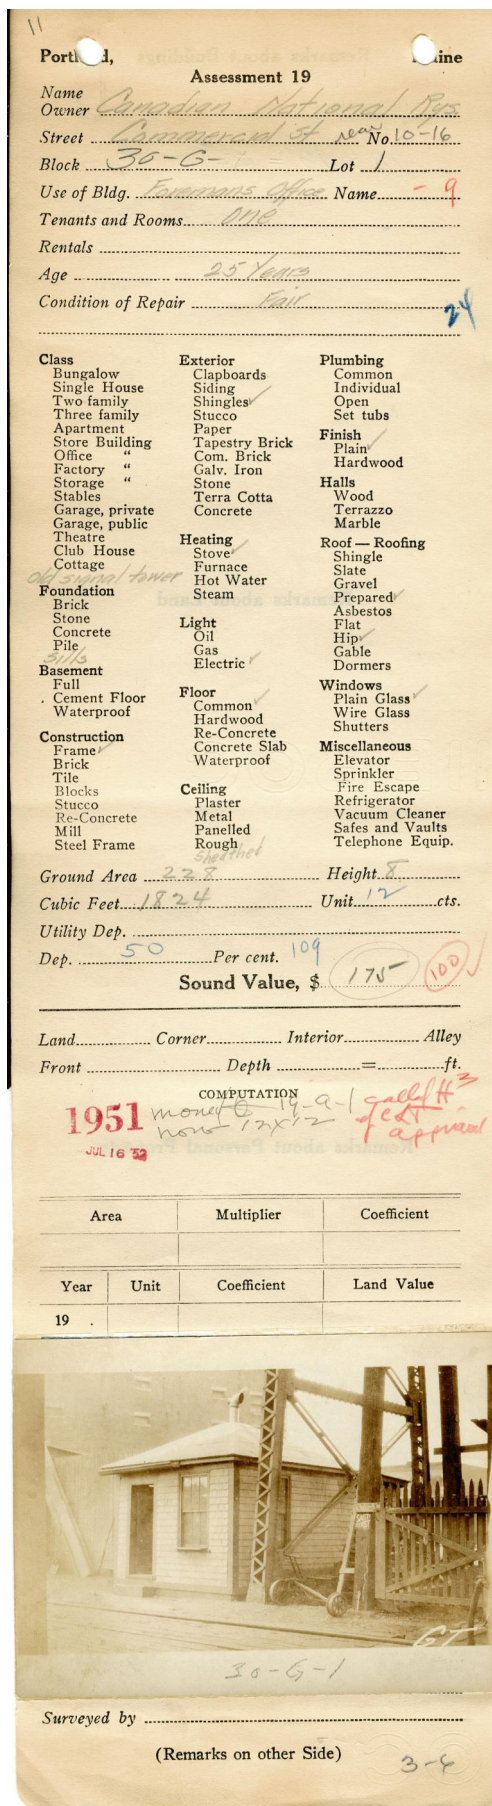 11
Portland, Maine
Assessment 19
Name
Owner Canadian National Rys.
Street Commercial St rear No. 10-16
Block 30-G- Lot 1
Use of Bldg. Foremans Office Name - 9
Tenants and Rooms One
Rentals
Age 25 Years
Condition of Repair Fair
24
Class
Bungalow
Single House
Two family
Three family
Apartment
Store Building
Office "
Factory "
Storage "
Stables
Garage, private
Garage, public
Theatre
Club House
Cottage
old signal tower
Foundation
Brick
Stone
Concrete
Pile
Sills
Basement
Full
Cement Floor
Waterproof
Construction
Frame ✓
Brick
Tile
Blocks
Stucco
Re-Concrete
Mill
Steel Frame
Exterior
Clapboards
Siding
Shingles ✓
Stucco
Paper
Tapestry Brick
Com. Brick
Galv. Iron
Stone
Terra Cotta
Concrete
Heating
Stove ✓
Furnace
Hot Water
Steam
Light
Oil
Gas
Electric ✓
Floor
Common ✓
Hardwood
Re-Concrete
Concrete Slab
Waterproof
Ceiling
Plaster
Metal
Panelled
Rough
Sheathed
Plumbing
Common
Individual
Open
Set tubs
Finish
Plain ✓
Hardwood
Halls
Wood
Terrazzo
Marble
Roof — Roofing
Shingle
Slate
Gravel
Prepared ✓
Asbestos
Flat
Hip ✓
Gable
Dormers
Windows
Plain Glass ✓
Wire Glass
Shutters
Miscellaneous
Elevator
Sprinkler
Fire Escape
Refrigerator
Vacuum Cleaner
Safes and Vaults
Telephone Equip.
Ground Area 228 Height 8
Cubic Feet 1824 Unit 12 cts.
Utility Dep.
Dep. 50 Per cent. 109
Sound Value, $ 175 100
Land Corner Interior Alley
Front Depth = ft.
COMPUTATION
1951 moved to 19-A-1
now 12x12
JUL 16 '52
approved
Area Multiplier Coefficient
Year Unit Coefficient Land Value
19 .
GT
30-G-1
Surveyed by
(Remarks on other Side)